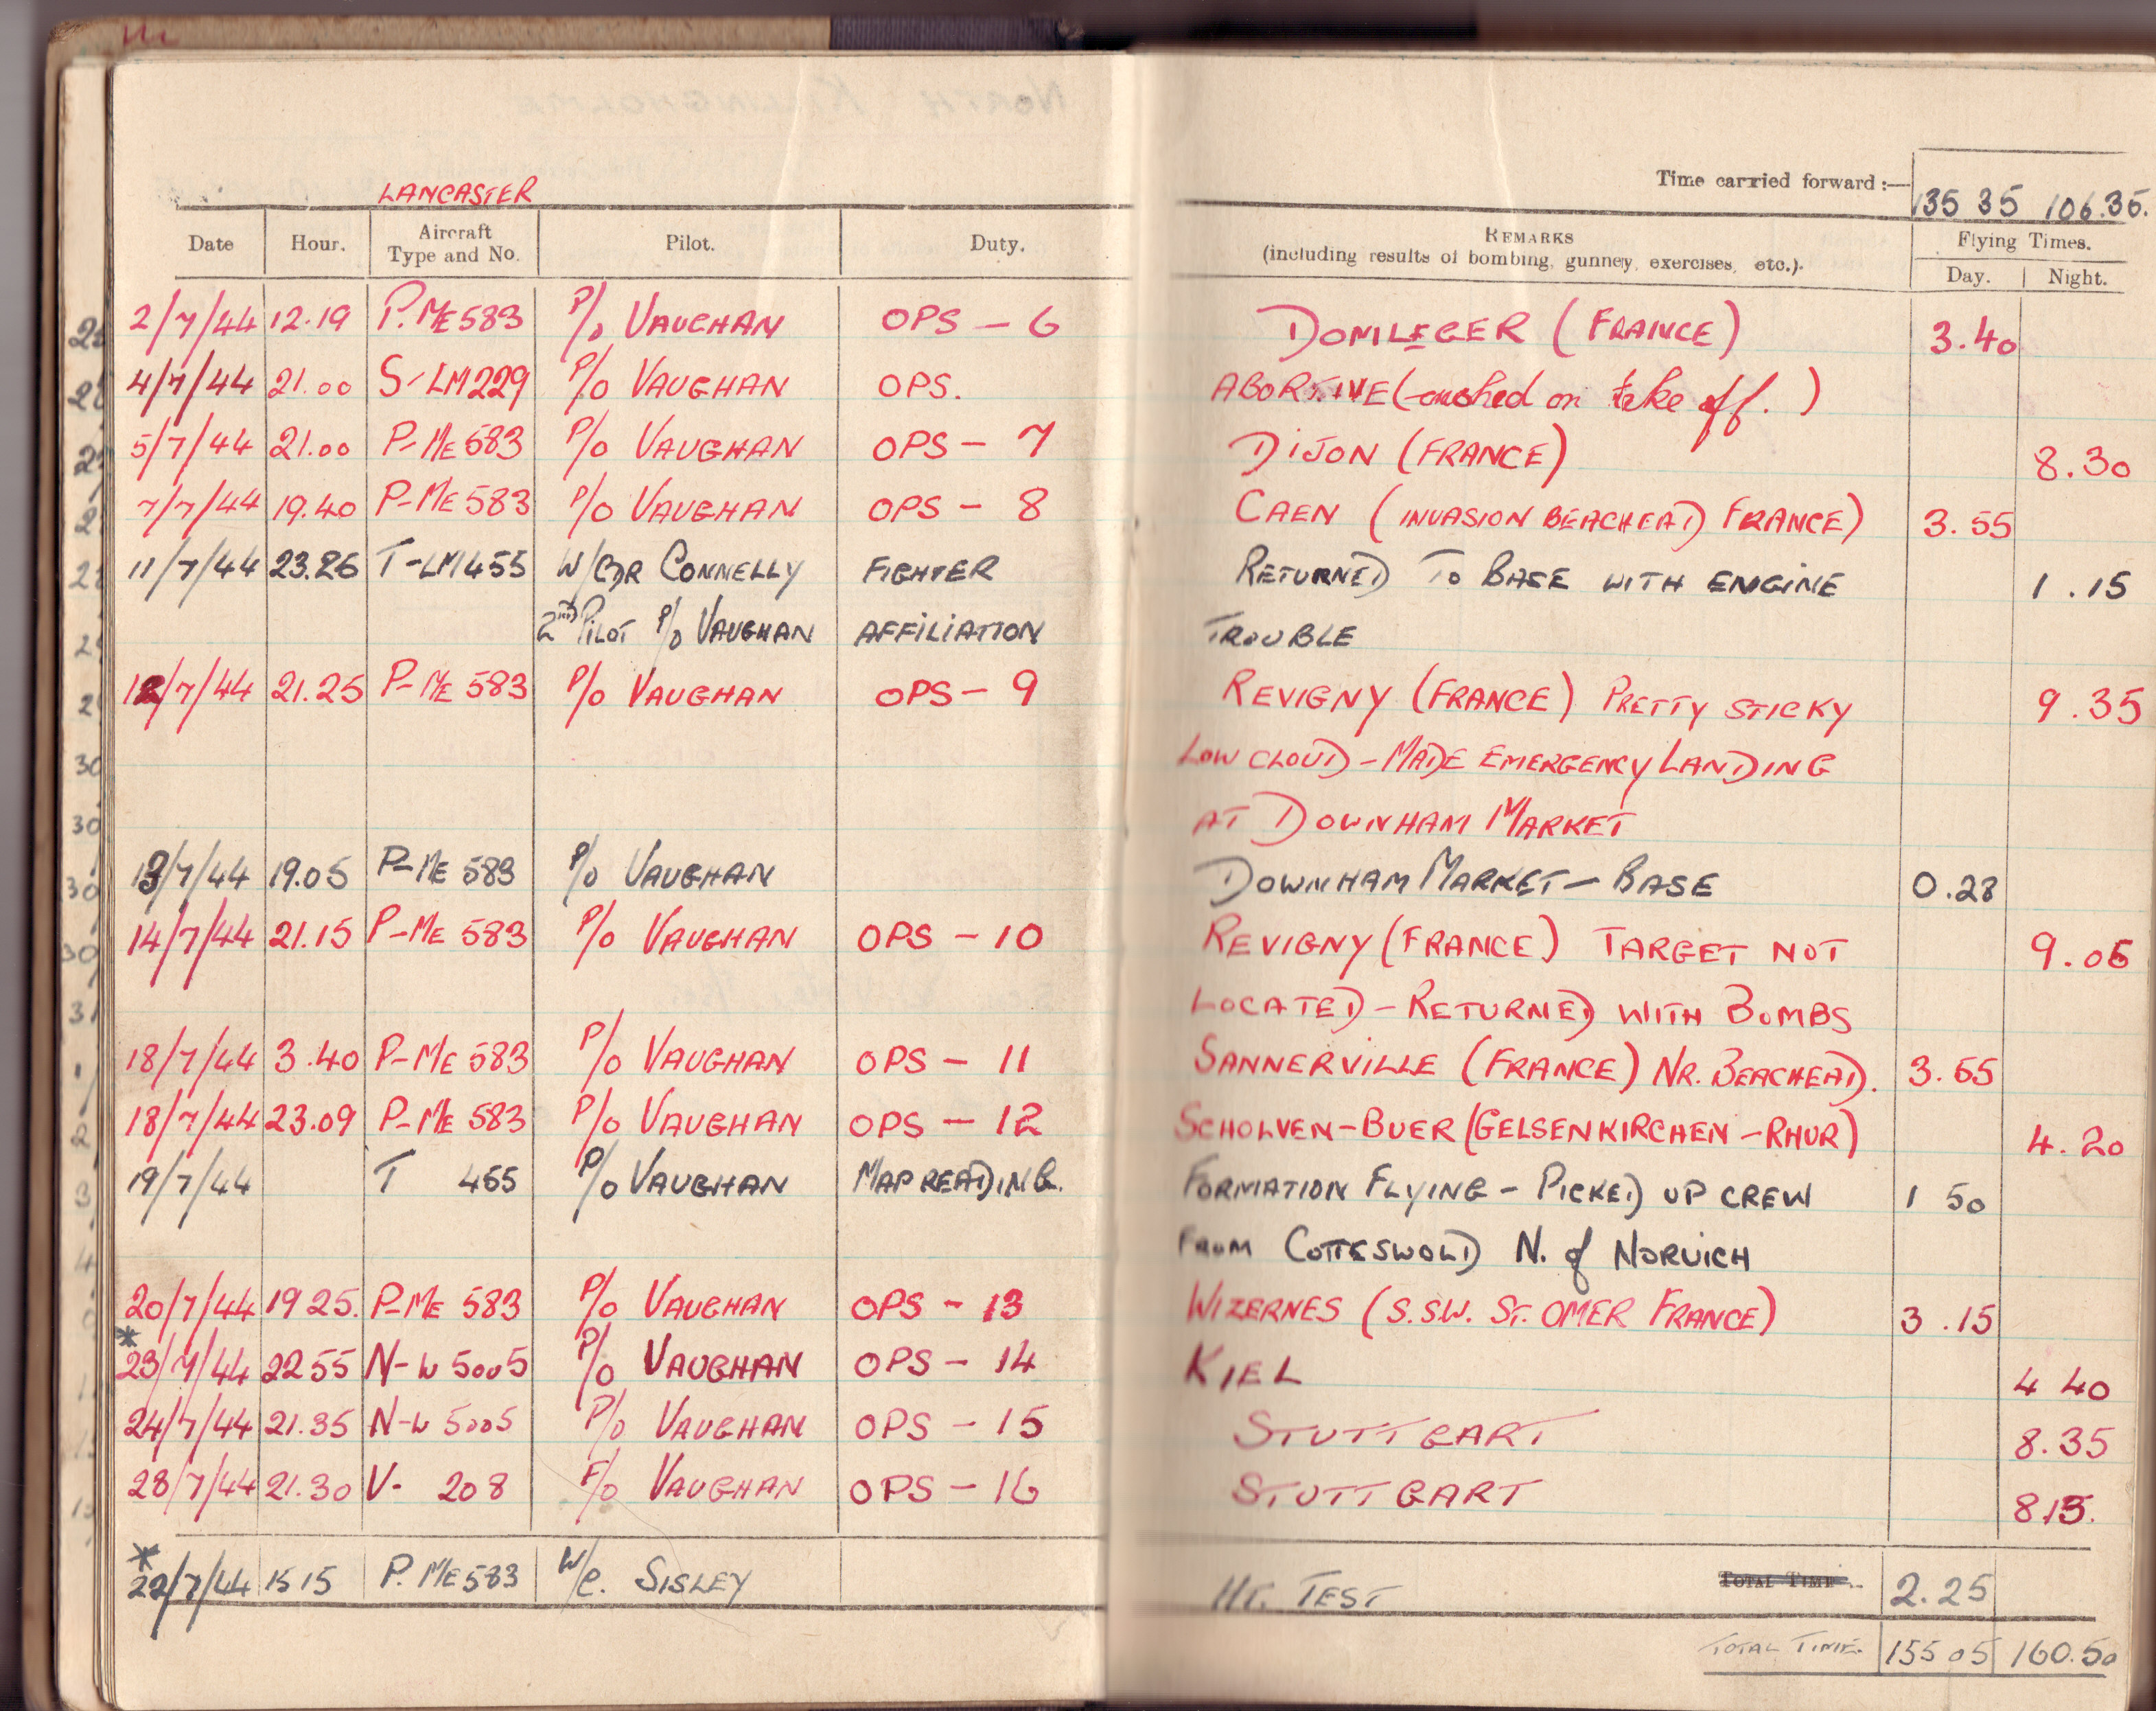 LANCASTER
Time carried forward :— 135 35 106.35.
Date Hour. Aircraft Type and No. Pilot. Duty. REMARKS (including results of bombing, gunnery, exercises, etc.). Flying Times. Day. Night.
2/7/44 12.19 P. ME 583 P/O VAUGHAN OPS – 6 DOMLEGER (FRANCE) 3.40
4/7/44 21.00 S-LM229 P/O VAUGHAN OPS. ABORTIVE (crashed on take off.)
5/7/44 21.00 P-ME 583 P/O VAUGHAN OPS – 7 DIJON (FRANCE) 8.30
7/7/44 19.40 P-ME 583 P/O VAUGHAN OPS – 8 CAEN (INVASION BEACHEAD FRANCE) 3.55
11/7/44 23.25 T-LM455 W/CDR CONNELLY FIGHTER RETURNED TO BASE WITH ENGINE 1.15
2ND PILOT P/O VAUGHAN AFFILIATION TROUBLE
12/7/44 21.25 P-ME 583 P/O VAUGHAN OPS – 9 REVIGNY (FRANCE) PRETTY STICKY 9.35
LOW CLOUD – MADE EMERGENCY LANDING
AT DOWNHAM MARKET
13/7/44 19.05 P-ME 583 P/O VAUGHAN DOWNHAM MARKET – BASE 0.28
14/7/44 21.15 P-ME 583 P/O VAUGHAN OPS – 10 REVIGNY (FRANCE) TARGET NOT 9.05
LOCATED – RETURNED WITH BOMBS
18/7/44 3.40 P-ME 583 P/O VAUGHAN OPS – 11 SANNERVILLE (FRANCE) NR. BEACHEAD. 3.55
18/7/44 23.09 P-ME 583 P/O VAUGHAN OPS – 12 SCHOLVEN-BUER (GELSENKIRCHEN – RHUR) 4.20
19/7/44 T 455 P/O VAUGHAN MAP READING. FORMATION FLYING – PICKED UP CREW 1 50
FROM COTTESWOLD N. of NORWICH
20/7/44 19 25. P-ME 583 P/O VAUGHAN OPS – 13 WIZERNES (S.SW. ST. OMER FRANCE) 3.15
* 23/7/44 22 55 N-W 5005 P/O VAUGHAN OPS – 14 KIEL 4 40
24/7/44 21.35 N-W 5005 P/O VAUGHAN OPS – 15 STUTTGART 8.35
28/7/44 21.30 V- 208 F/O VAUGHAN OPS – 16 STUTTGART 8 15.
* 22/7/44 15 15 P. ME 583 W/C. SISLEY Ht. TEST TOTAL TIME.. 2.25
TOTAL TIME. 155 05 160.50